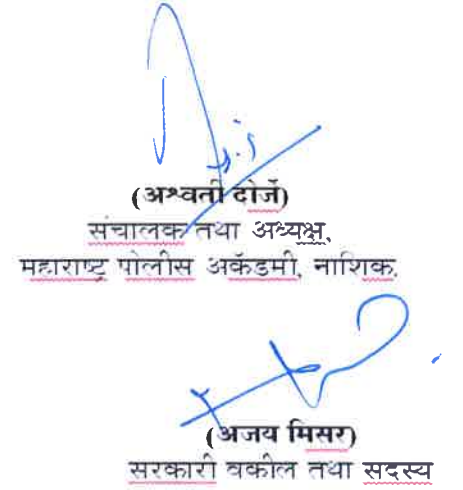 (अश्वती दोर्जे)
संचालक तथा अध्यक्ष,
महाराष्ट्र पोलीस अकॅडमी, नाशिक.
(अजय मिसर)
सरकारी वकील तथा सदस्य